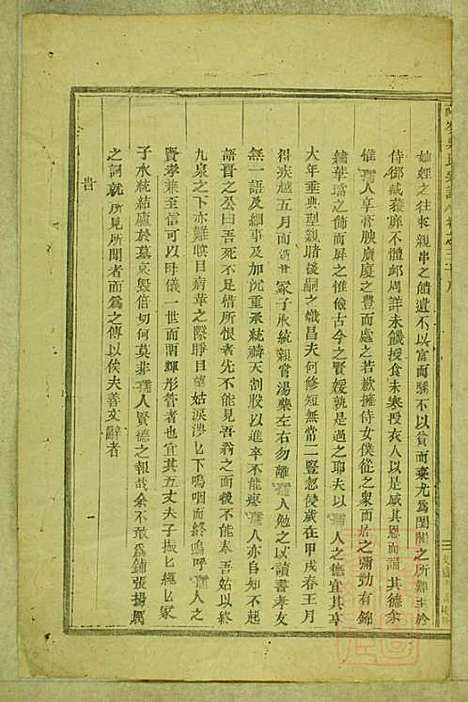 妯娌之往來親串之饋遺不以富而驕不以貧而棄尤爲閨閫之所難至於
侍御臧獲靡不體䘏周詳未饑授食未寒授衣人以是感其恩而誦其德余
惟孺人享膏腴廣廈之豐而處之若歉擁侍女僕從之衆而居之彌勤有錦
繡華璫之飾而屏之惟儉古今之賢媛孰是過之耶夫以孺人之德宜其享
大年垂典型親睹後嗣之熾昌夫何修短無常二豎忽侵歲在甲戌春王月
搆疾越五月而 冢子永統親嘗湯藥左右勿離孺人勉之以讀書孝友
無一語及細事及加沉重承統禱天割股以進卒不能瘳孺人亦自知不起
語晋之公曰吾死不足惜所恨者先不能見吾翁之面後不能奉吾姑以終
九泉之下亦難瞑目病革之際睜目望姑淚涔涔下嗚咽而終嗚呼孺人之
賢孝兼至信可以母儀一世而開輝彤管者也宜其五丈夫子振振繩繩冢
子永統結廬於墓哀毀倍切何莫非孺人賢德之報哉余不敢爲鋪張揚厲
之詞就所見所聞者而爲之傳以俟夫善文辭者